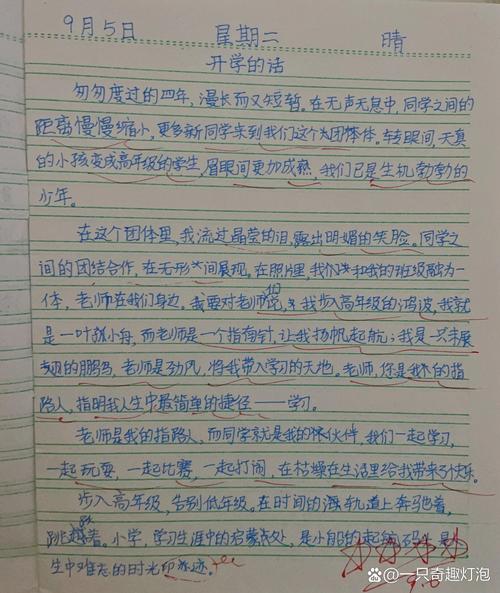 9月5日 星期二 晴
开学的话
匆匆度过的四年，漫长而又短暂。在无声无息中，同学之间的
距离慢慢缩小，更多新同学来到我们这个大团体。转眼间，天真
的小孩变成高年级的学生，眉眼间更加成熟，我们已是生机勃勃的
少年。
在这个团体里，我流过晶莹的泪，露出明媚的笑脸。同学之
间的团结合作，在无形之间展现。在照片里，我和我的班级融为一
体，老师在我们身边，我要对老师说，步入高年级的鸿波，我就
是一叶小舟，而老师是一个指南针，让我扬帆起航；我是一只未展
翅的鹏鸟，老师是劲风，将我带入学习的天地。老师，您是我的指
路人，指明我人生中最简单的捷径——学习。
老师是我的指路人，而同学就是我的伙伴，我们一起学习，
一起玩耍，一起比赛，一起打闹，在枯燥在生活里给我带来了快乐。
步入高年级，告别低年级。在时间的轨道上奔驰着，
跳越着。小学，学习生涯中的启蒙处，是小船的起航码头，是
生中难忘的时光印迹。
@一只奇趣灯泡